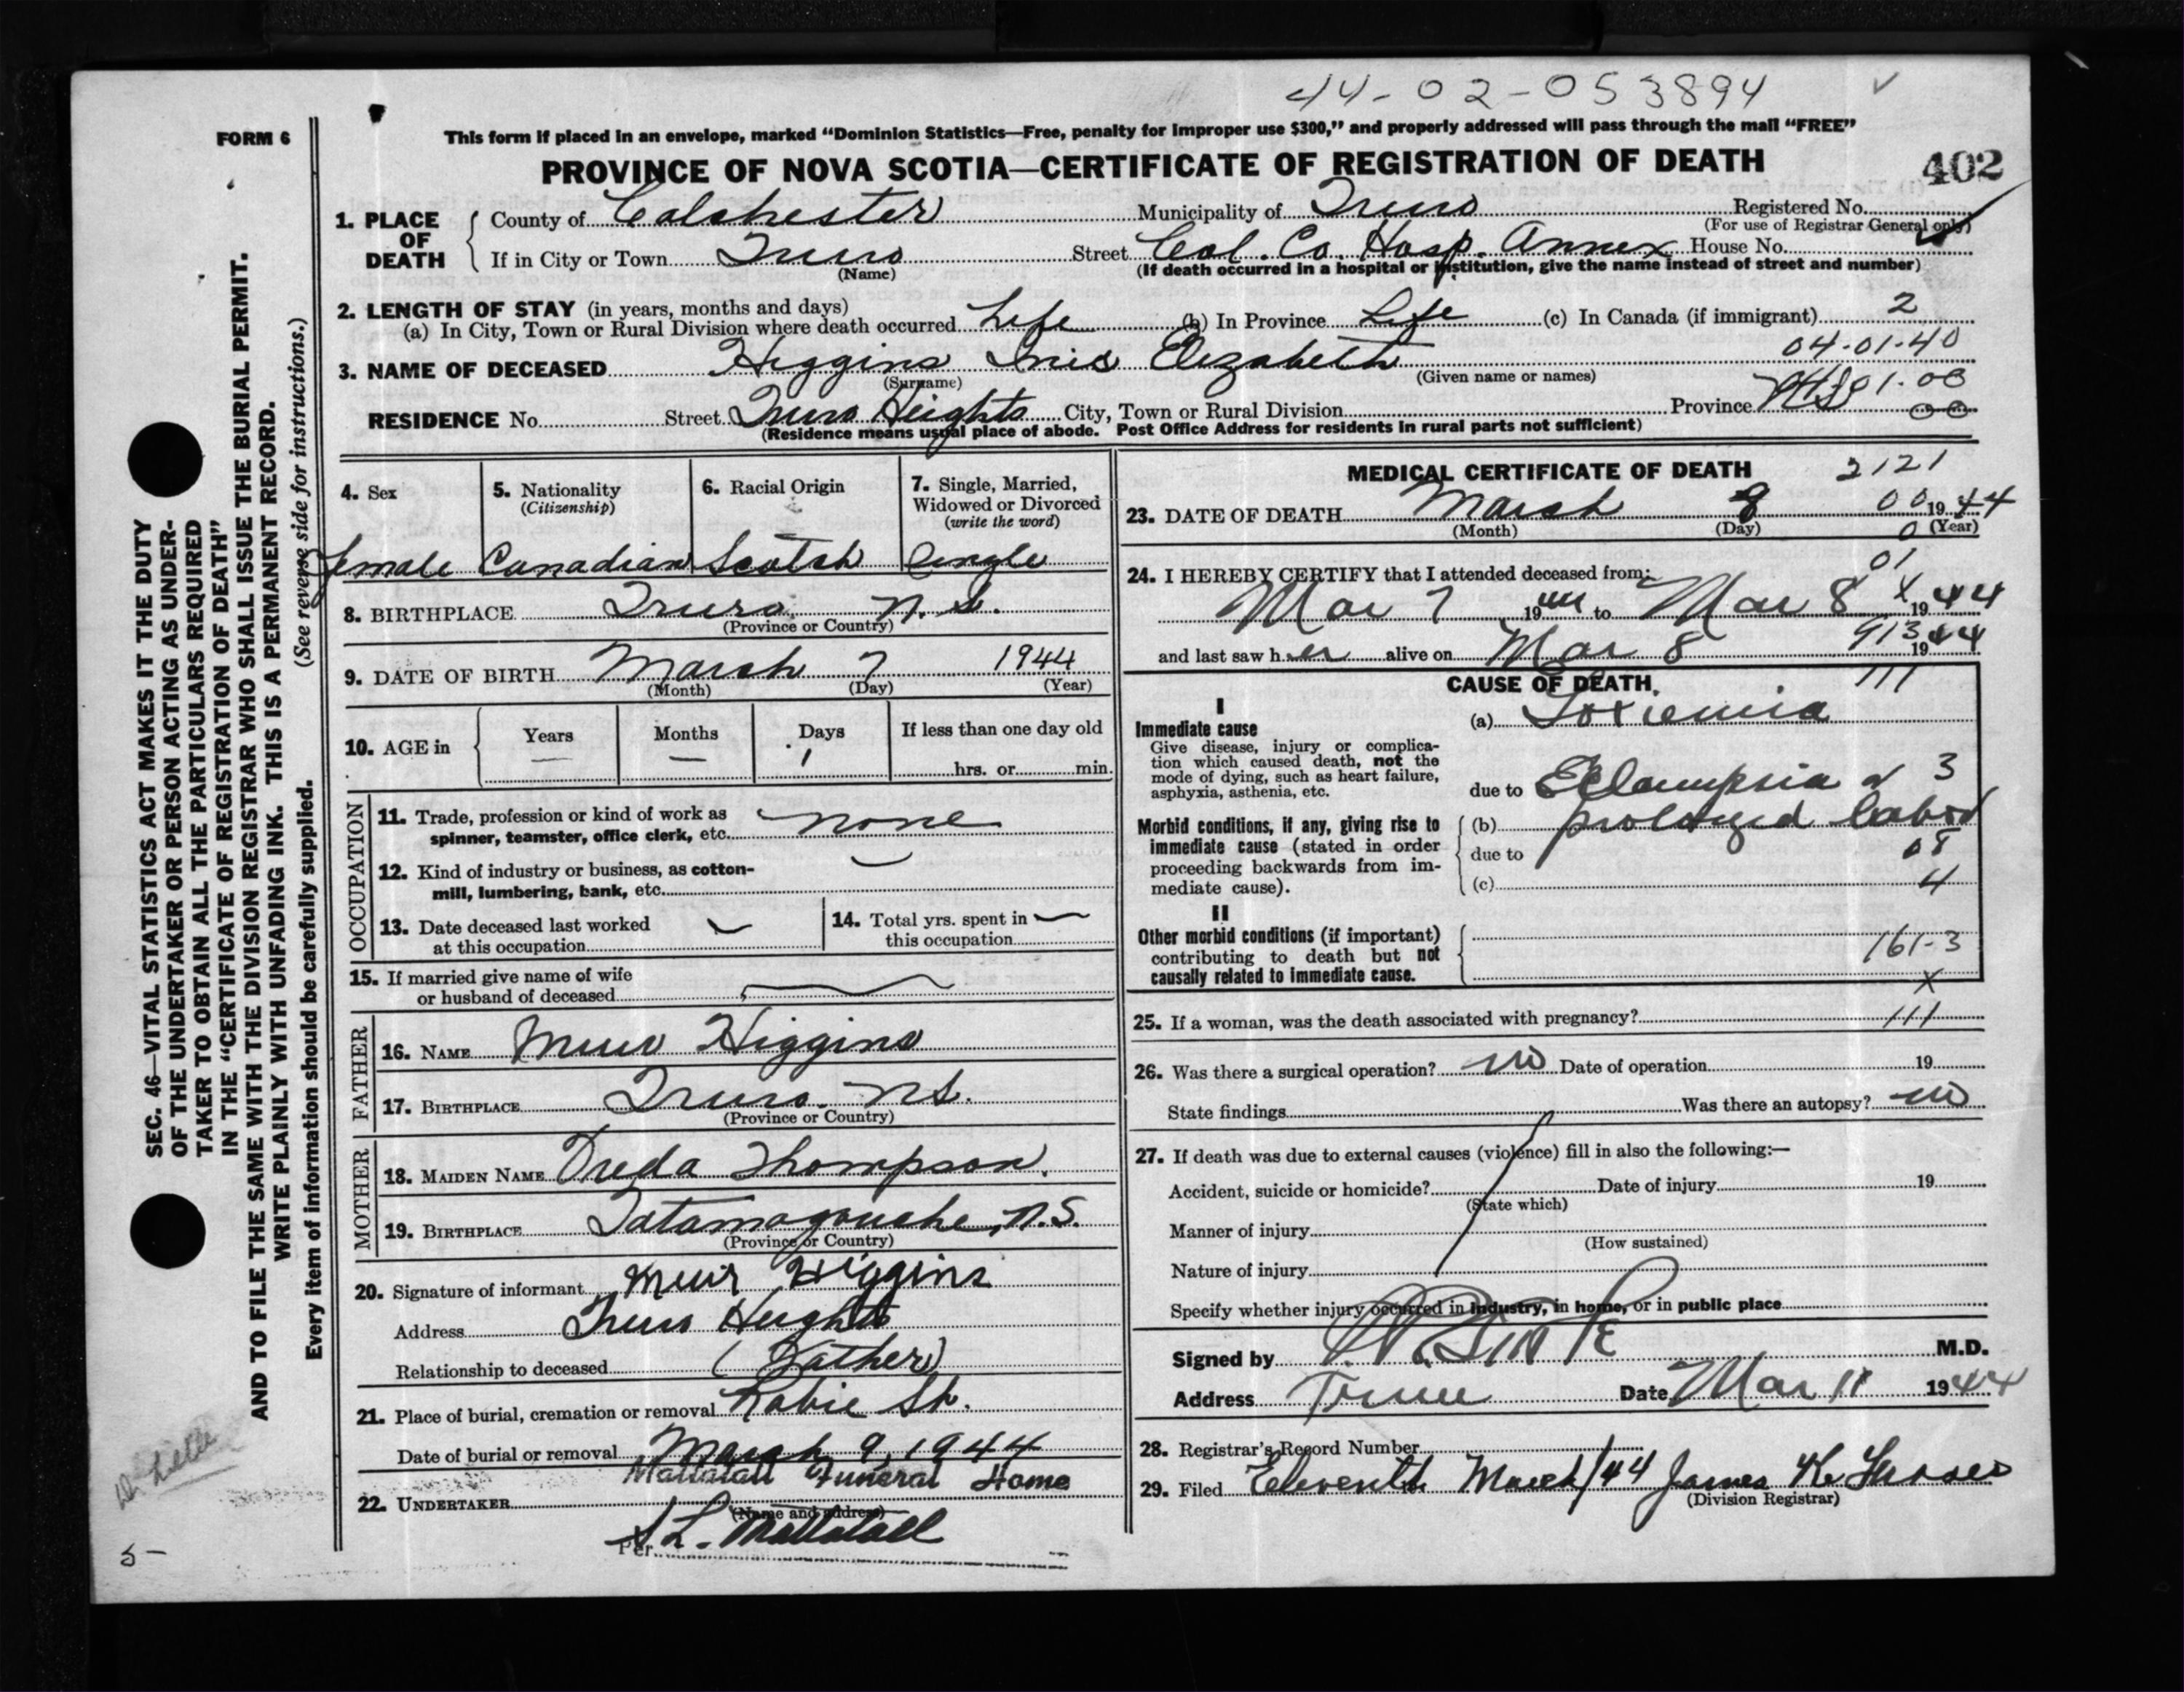 44-02-053894
FORM 6
This form if placed in an envelope, marked "Dominion Statistics—Free, penalty for improper use $300," and properly addressed will pass through the mail "FREE"
PROVINCE OF NOVA SCOTIA—CERTIFICATE OF REGISTRATION OF DEATH
402
1. PLACE OF DEATH
County of Colchester Municipality of Truro Registered No.
(For use of Registrar General only)
If in City or Town Truro Street Col. Co. Hosp. Annex House No.
(Name) (If death occurred in a hospital or institution, give the name instead of street and number)
2. LENGTH OF STAY (in years, months and days)
(a) In City, Town or Rural Division where death occurred Life (b) In Province Life (c) In Canada (if immigrant) 2
04-01-40
3. NAME OF DECEASED Higgins Inis Elizabeth
(Surname) (Given name or names)
RESIDENCE No. Street Truro Heights City, Town or Rural Division Province N.S. 01-00
00
(Residence means usual place of abode. Post Office Address for residents in rural parts not sufficient)
4. Sex
female
5. Nationality
(Citizenship)
Canadian
6. Racial Origin
Scotch
7. Single, Married, Widowed or Divorced
(write the word)
Single
8. BIRTHPLACE Truro N.S.
(Province or Country)
9. DATE OF BIRTH March 7 1944
(Month) (Day) (Year)
10. AGE in
Years —
Months —
Days 1
If less than one day old
hrs. or min.
OCCUPATION
11. Trade, profession or kind of work as spinner, teamster, office clerk, etc. none
12. Kind of industry or business, as cotton-mill, lumbering, bank, etc.
13. Date deceased last worked at this occupation
14. Total yrs. spent in this occupation
15. If married give name of wife or husband of deceased
FATHER
16. NAME Muir Higgins
17. BIRTHPLACE Truro. N.S.
(Province or Country)
MOTHER
18. MAIDEN NAME Freda Thompson.
19. BIRTHPLACE Tatamagouche, N.S.
(Province or Country)
20. Signature of informant Muir Higgins
Address Truro Heights
Relationship to deceased (Father)
21. Place of burial, cremation or removal Robie St.
Date of burial or removal March 9, 1944
Mattatall Funeral Home
22. UNDERTAKER
(Name and address)
Per L. Mattatall
MEDICAL CERTIFICATE OF DEATH 2121
23. DATE OF DEATH March 8 00 1944
(Month) (Day) 0 (Year)
01
24. I HEREBY CERTIFY that I attended deceased from:
Mar 7 1944 to Mar 8 X 1944
913
and last saw her alive on Mar 8 1944
CAUSE OF DEATH. 111
I
Immediate cause
Give disease, injury or complication which caused death, not the mode of dying, such as heart failure, asphyxia, asthenia, etc.
(a) Toxiemia
due to Eclampsia & 3
Morbid conditions, if any, giving rise to immediate cause (stated in order proceeding backwards from immediate cause).
(b) prolonged labor
due to 08
(c) 4
II
Other morbid conditions (if important) contributing to death but not causally related to immediate cause.
161-3
X
25. If a woman, was the death associated with pregnancy? 111
26. Was there a surgical operation? no Date of operation 19
State findings Was there an autopsy? no
27. If death was due to external causes (violence) fill in also the following:—
Accident, suicide or homicide? Date of injury 19
(State which)
Manner of injury
(How sustained)
Nature of injury
Specify whether injury occurred in industry, in home, or in public place
Signed by M.D.
Address Truro Date Mar 11 1944
28. Registrar's Record Number
29. Filed Eleventh March/44 James
(Division Registrar)
SEC. 46—VITAL STATISTICS ACT MAKES IT THE DUTY
OF THE UNDERTAKER OR PERSON ACTING AS UNDER-
TAKER TO OBTAIN ALL THE PARTICULARS REQUIRED
IN THE "CERTIFICATE OF REGISTRATION OF DEATH"
AND TO FILE THE SAME WITH THE DIVISION REGISTRAR WHO SHALL ISSUE THE BURIAL PERMIT.
WRITE PLAINLY WITH UNFADING INK. THIS IS A PERMANENT RECORD.
Every item of information should be carefully supplied. (See reverse side for instructions.)
5-